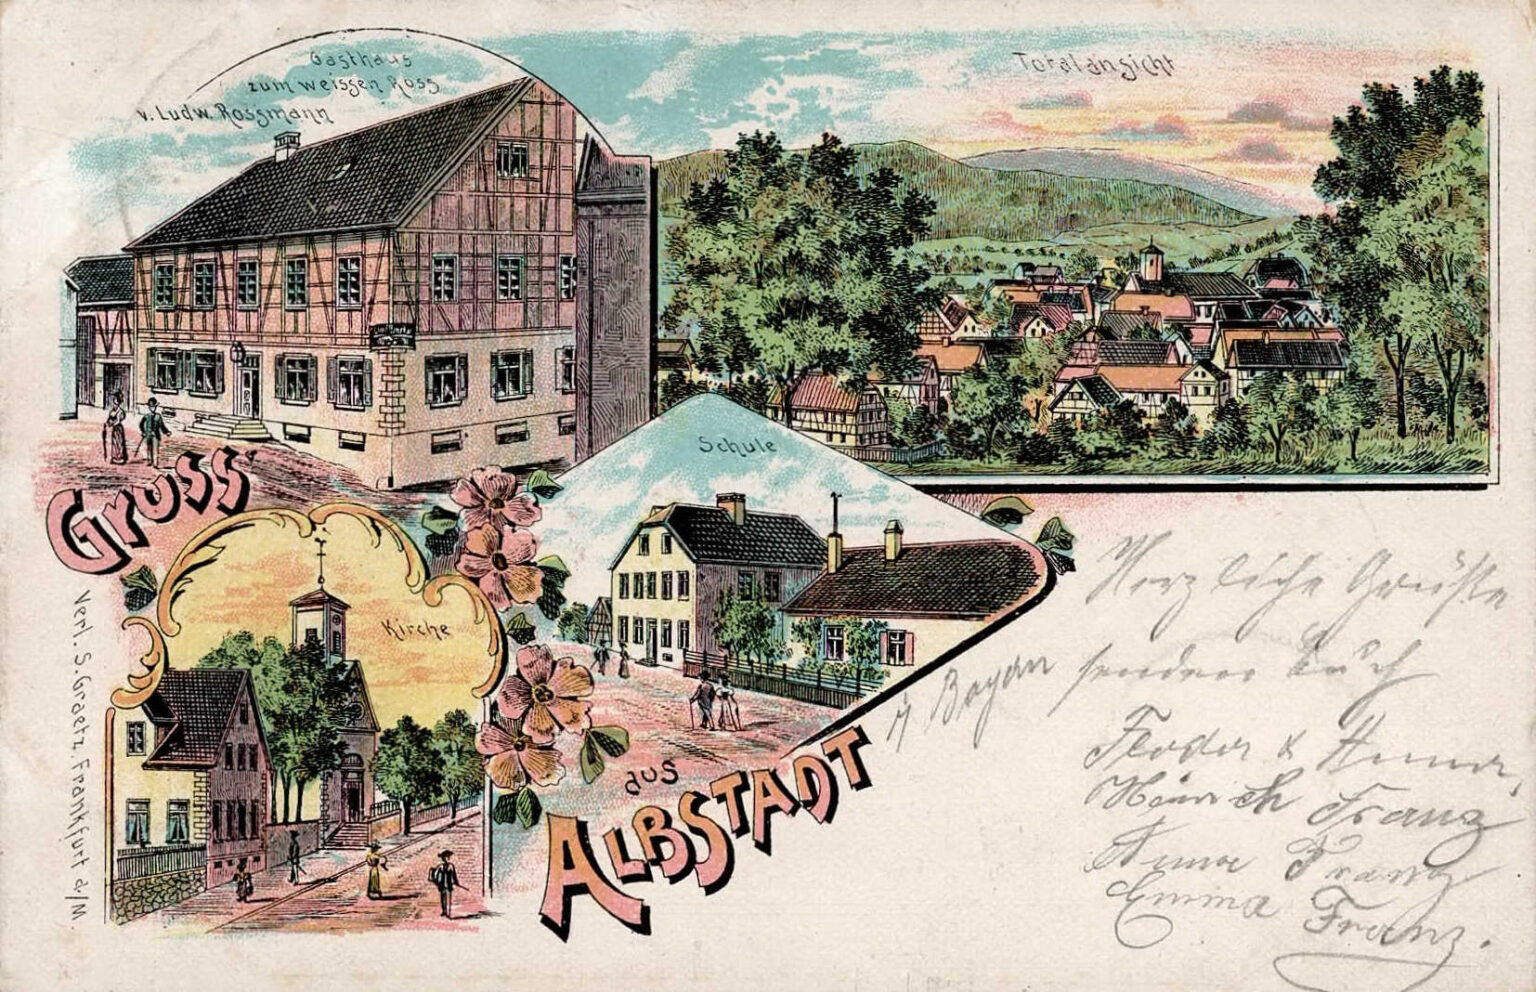 Gasthaus
zum weissen Ross
v. Ludw. Rossmann
Totalansicht
Schule
Gruss
Kirche
aus
Albstadt
Verl. S. Graetz, Frankfurt a/M.
Herzliche Grüße
senden Euch
Bayern
Feodor & Anna,
Heinrich Franz
Anna Franz
Emma Franz.